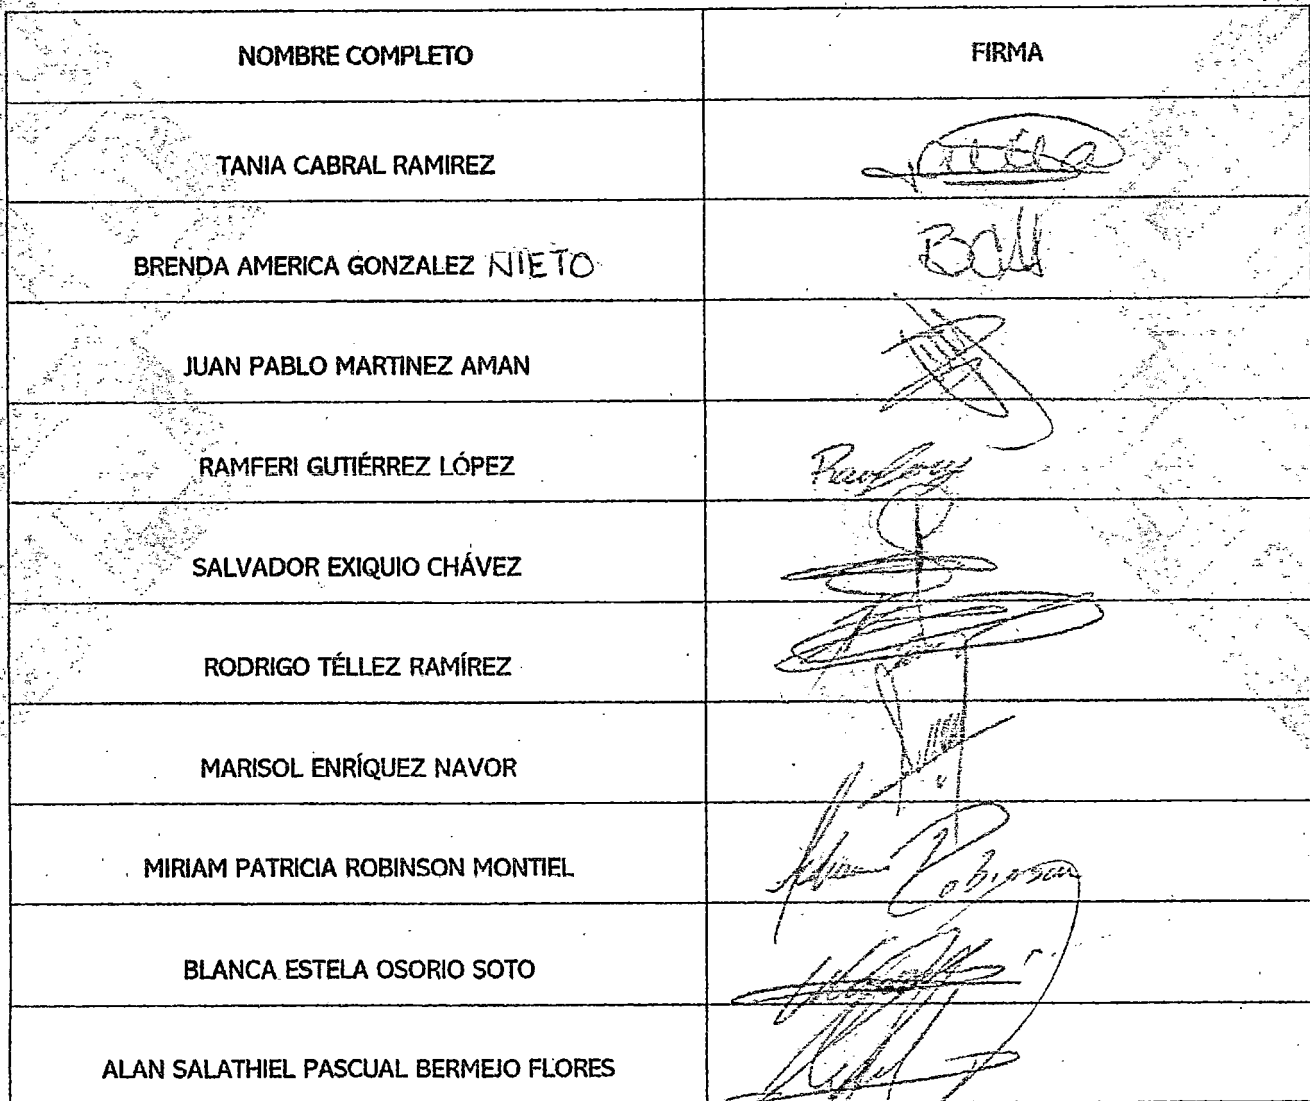 NOMBRE COMPLETO FIRMA
TANIA CABRAL RAMIREZ
BRENDA AMERICA GONZALEZ NIETO
JUAN PABLO MARTINEZ AMAN
RAMFERI GUTIÉRREZ LÓPEZ
SALVADOR EXIQUIO CHÁVEZ
RODRIGO TÉLLEZ RAMÍREZ
MARISOL ENRÍQUEZ NAVOR
MIRIAM PATRICIA ROBINSON MONTIEL Robinson
BLANCA ESTELA OSORIO SOTO
ALAN SALATHIEL PASCUAL BERMEJO FLORES